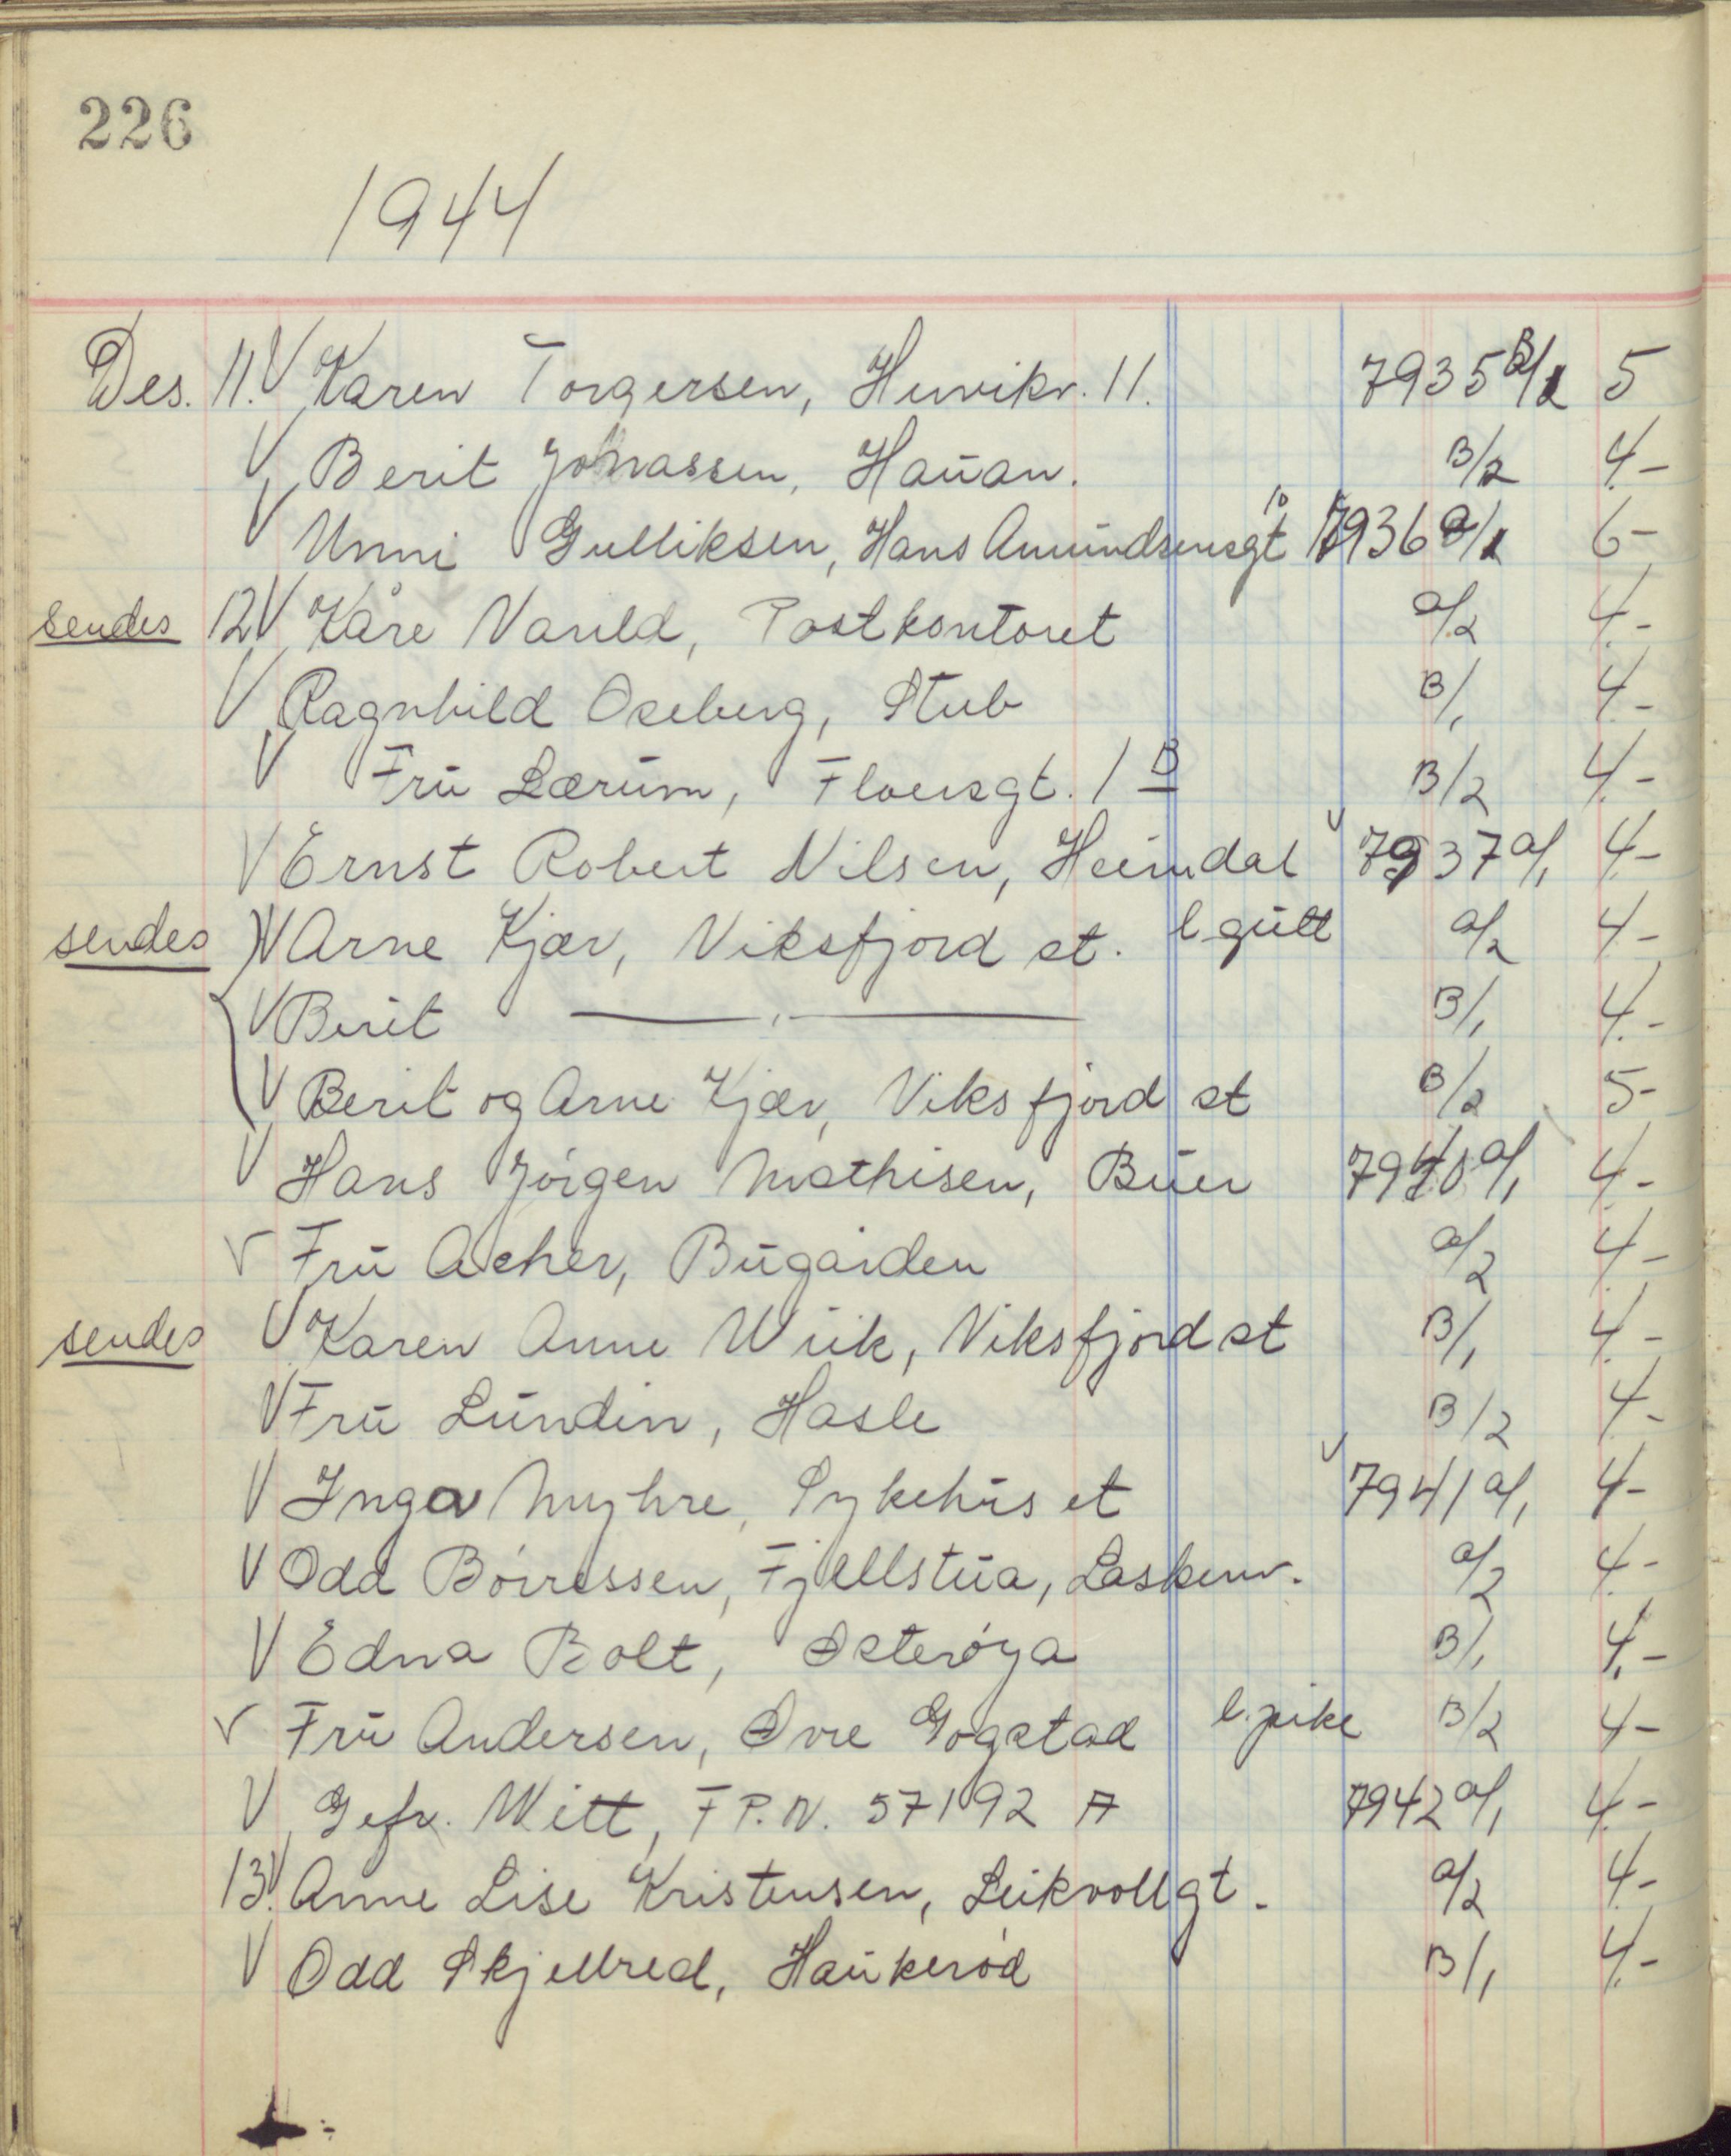 226
1944
Des. 11. V Karen Torgersen, Hunvikv. 11. 7935 B/2 5
V Berit Johnassen, Hauan. B/2 4.-
V Unni Gulliksen, Hans Amundsensgt 10 7936 a/1 6-
sendes 12 V Kåre Varild, Postkontoret a/2 4.-
V Ragnhild Oseberg, Stub B/1 4.-
V Fru Lærum, Floensgt. 1 B B/2 4.-
V Ernst Robert Nilsen, Heimdal V 7937 a/1 4.-
sendes V Arne Kjær, Viksfjord st. l. gutt a/2 4.-
V Berit —— , —— B/1 4.-
V Berit og Arne Kjær, Viksfjord st B/2 5-
V Hans Jörgen Mathisen, Buer 7940 a/1 4.-
V Fru Acher, Bugården a/2 4.-
sendes V Karen Anne Wiik, Viksfjord st B/1 4.-
V Fru Lundin, Hasle B/2 4.-
V Inga Myhre, Sykehuset V 7941 a/1 4-
V Odd Börressen, Fjellstua, Laskenv. a/2 4.-
V Edna Bolt, Østerøya B/1 4.-
V Fru Andersen, Øvre Gogstad l. pike B/2 4-
V Gefr. Witt, F P. N. 57192 A 7942 a/1 4.-
13. V Anne Lise Kristensen, Leikvollgt. a/2 4.-
V Odd Skjellred, Haukeröd B/1 4.-